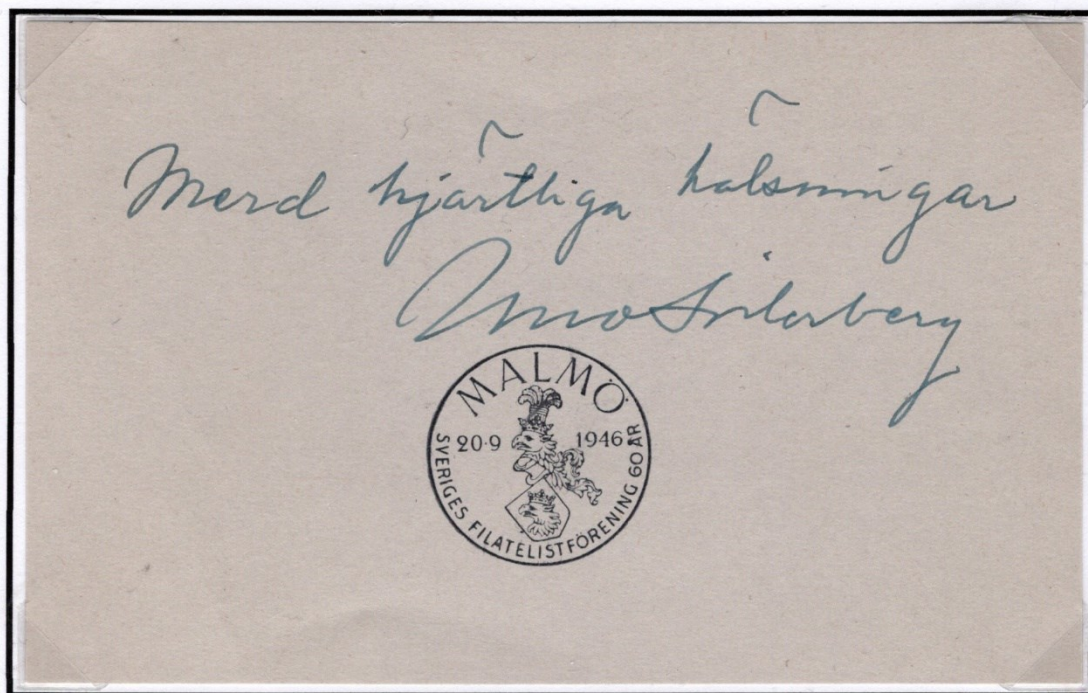 Med hjärtliga hälsningar
Uno Söderberg
MALMÖ
20·9 1946
SVERIGES FILATELISTFÖRENING 60 ÅR